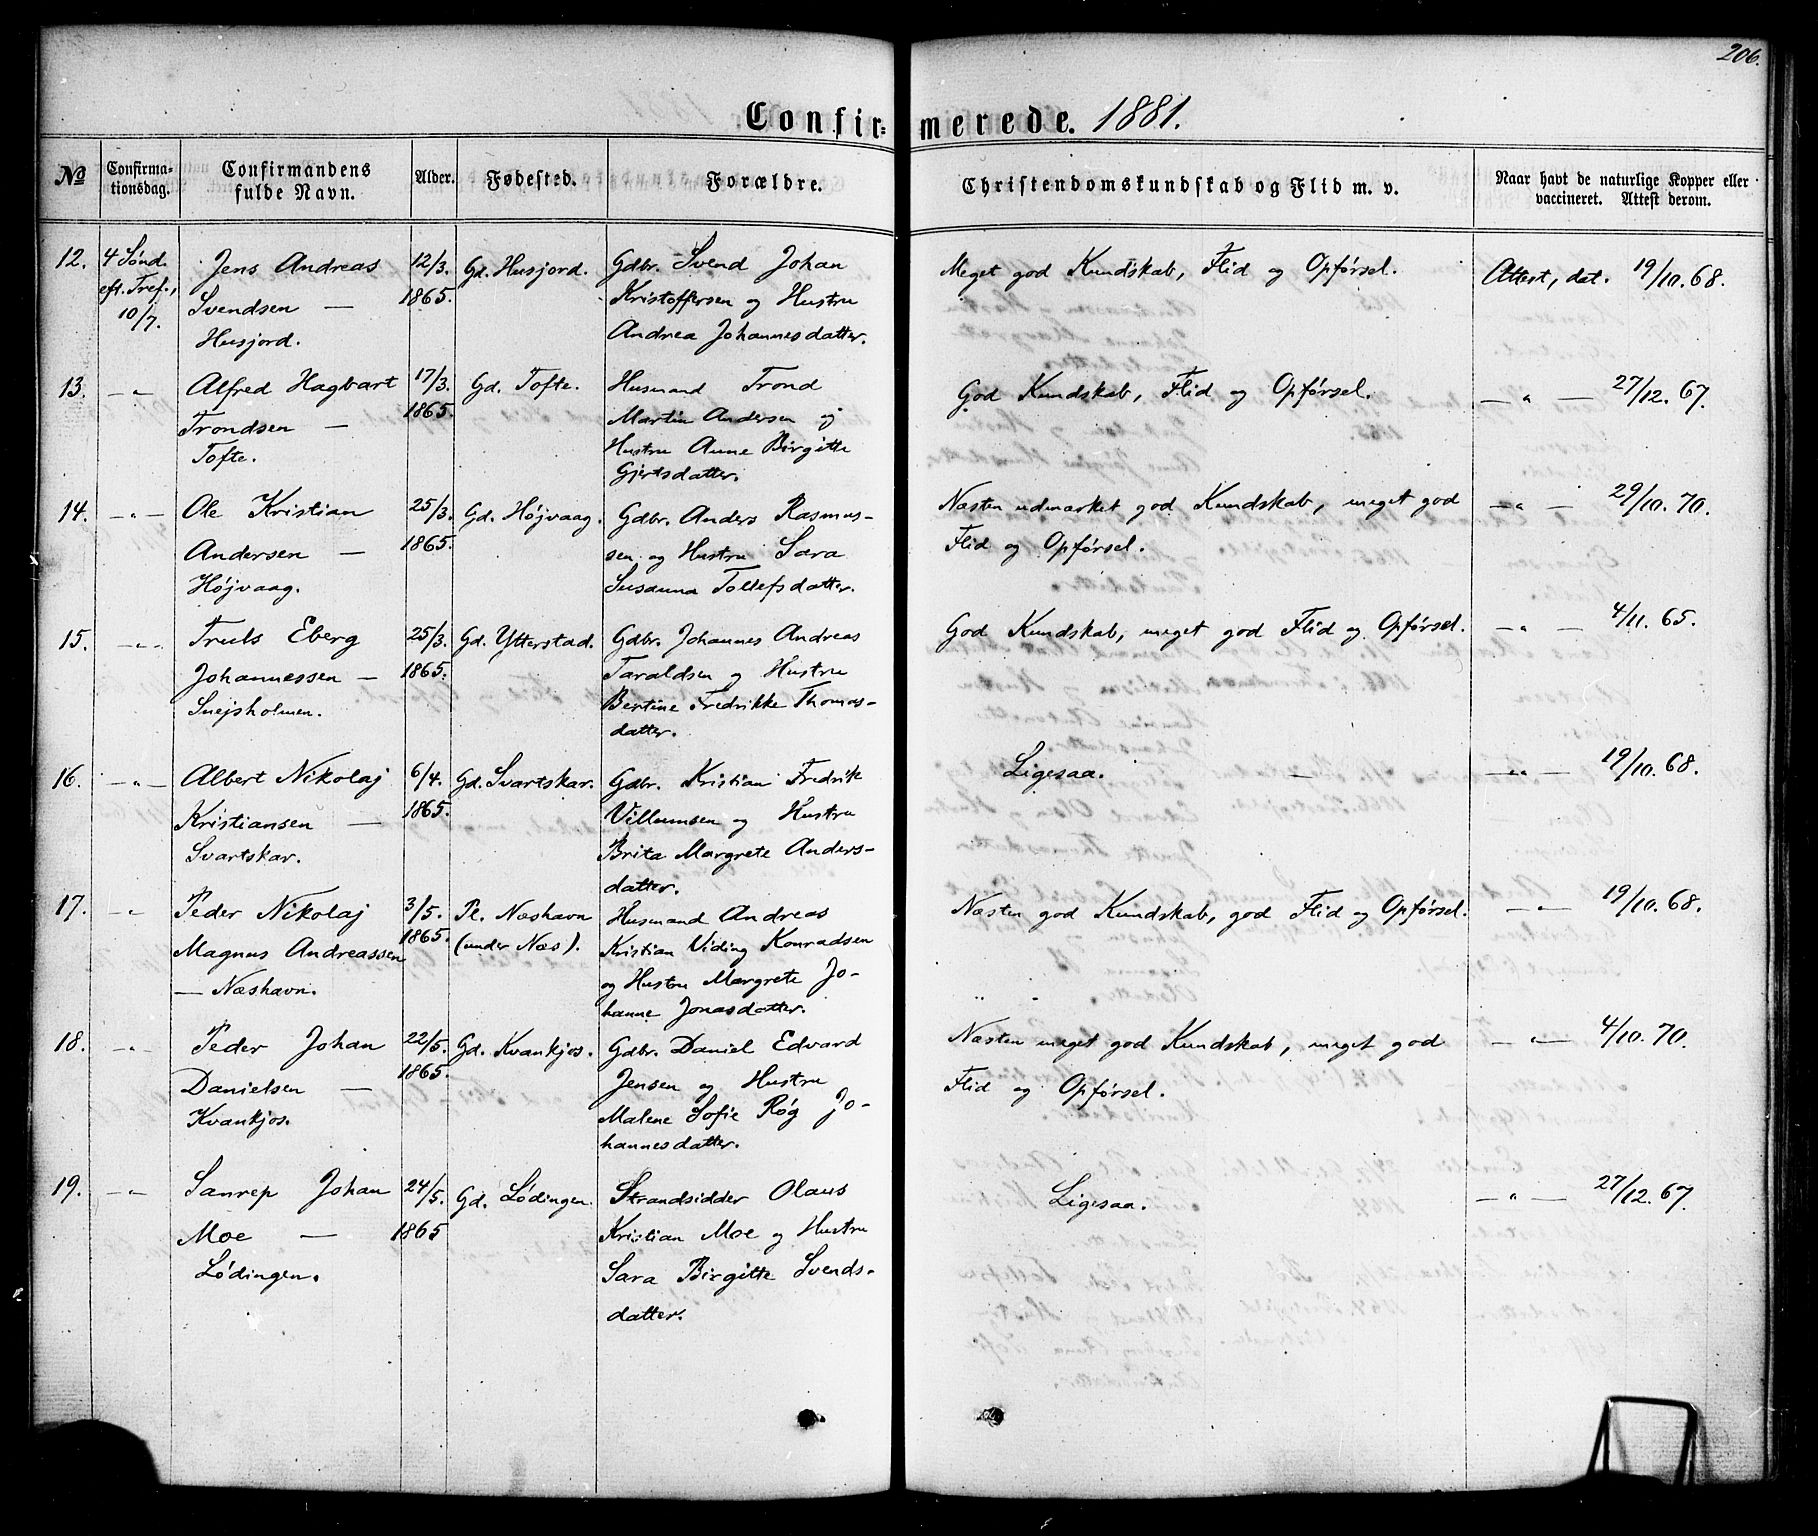 206.
Confirmerede. 1881.
No Confirmationsdag. Confirmandens fulde Navn. Alder. Fødested. Forældre. Christendomskundskab og Flid m. v. Naar havt de naturlige Kopper eller vaccineret. Attest derom.
12. 4 Sønd. Jens Andreas 12/3. Gd. Husjord. Gdbr. Svend Johan Meget god Kundskab, Flid og Opførsel. Attest, dat. 19/10. 68.
eft. Tref., Svendsen — 1865. Kristoffersen og Hustru
10/7. Husjord. Andrea Johannesdatter.
13. — „ — Alfred Hagbart 17/3. Gd. Tofte. Husmand Trond God Kundskab, Flid og Opførsel. — „ — 27/12. 67.
Trondsen — 1865. Martin Andersen og
Tofte. Hustru Anne Birgitte
Gjertsdatter.
14. — „ — Ole Kristian 25/3. Gd. Højvaag. Gdbr. Anders Rasmus- Næsten udmærket god Kundskab, meget god — „ — 29/10. 70.
Andersen — 1865. sen og Hustru Sara Flid og Opførsel.
Højvaag. Susanna Tollefsdatter.
15. — „ — Truls Eberg 25/3. Gd. Ytterstad. Gdbr. Johannes Andreas God Kundskab, meget god Flid og Opførsel. — „ — 4/11. 65.
Johannessen — 1865. Taraldsen og Hustru
Snejsholmen. Bertine Fredrikke Thomas-
datter.
16. — „ — Albert Nikolaj 6/4. Gd. Svartskar. Gdbr. Kristian Fredrik Ligesaa. — „ — 19/10. 68.
Kristiansen — 1865. Villumsen og Hustru
Svartskar. Brita Margrete Anders-
datter.
17. — „ Peder Nikolaj 3/5. Pl. Næshavn Husmand Andreas Næsten god Kundskab, god Flid og Opførsel. — „ — 19/10. 68.
Magnus Andreassen 1865. (under Næs). Kristian Viding Konradsen
— Næshavn. og Hustru Margrete Jo-
hanne Jonasdatter.
18. — „ Peder Johan 22/5. Gd. Kvankjos. Gdbr. Daniel Edvard Næsten meget god Kundskab, meget god — „ — 4/10. 70.
Danielsen — 1865. Jensen og Hustru Flid og Opførsel.
Kvankjos. Malene Sofie Røg Jo-
hannesdatter.
19. — „ Sanrep Johan 24/5. Gd. Lødingen. Strandsidder Olaus Ligesaa. — „ — 27/12. 67.
Moe — 1865 Kristian Moe og Hustru
Lødingen. Sara Birgitte Svends-
datter.